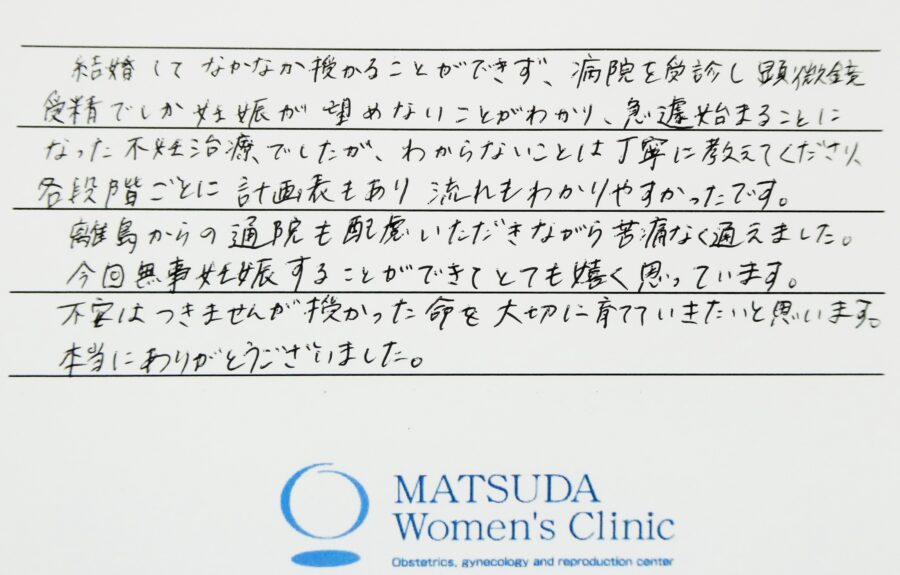 結婚して なかなか授かることができず、病院を受診し顕微鏡
受精でしか妊娠が望めないことがわかり、急遽始まることに
なった不妊治療でしたが、わからないことは丁寧に教えてくださり、
各段階ごとに計画表もあり 流れもわかりやすかったです。
離島からの通院も配慮いただきながら苦痛なく通えました。
今回無事妊娠することができてとても嬉く思っています。
不安はつきませんが授かった命を大切に育てていきたいと思います。
本当にありがとうございました。
MATSUDA
Women's Clinic
Obstetrics, gynecology and reproduction center